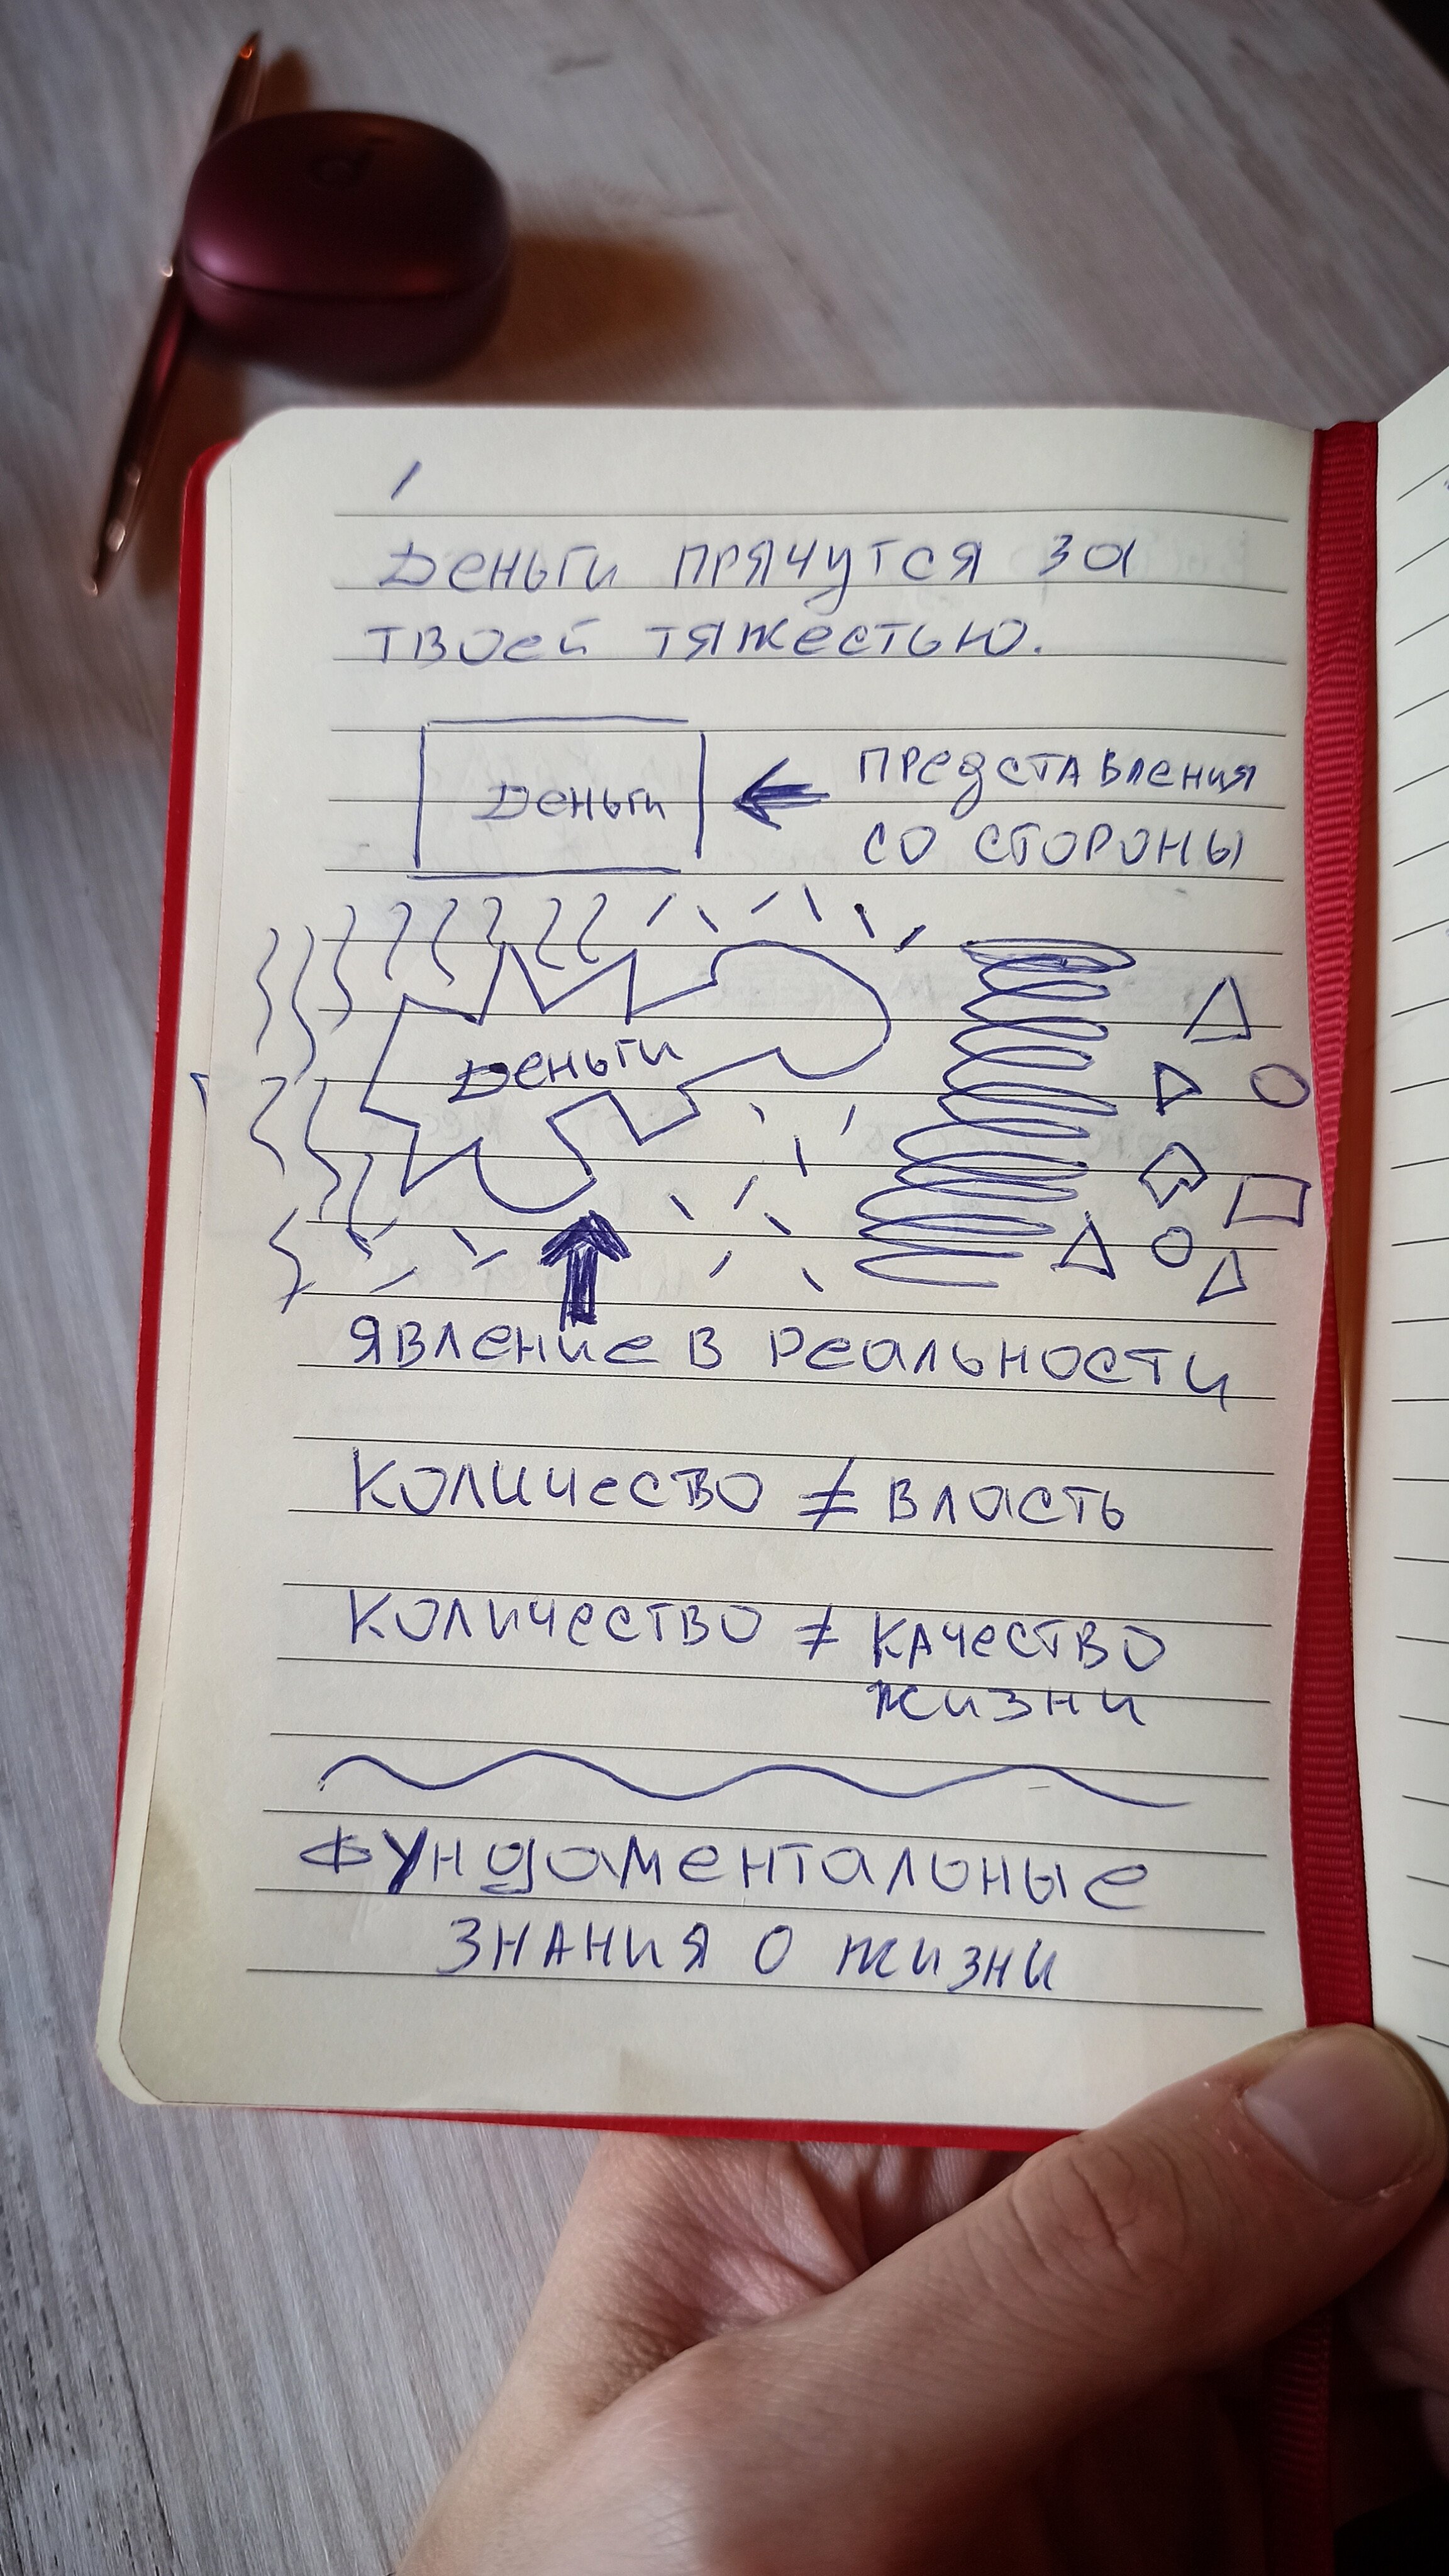 Деньги прячутся за
твоей тяжестью.
Деньги
представления
со стороны
Деньги
явление в реальности
Количество ≠ власть
Количество ≠ качество
жизни
Фундаментальные
знания о жизни